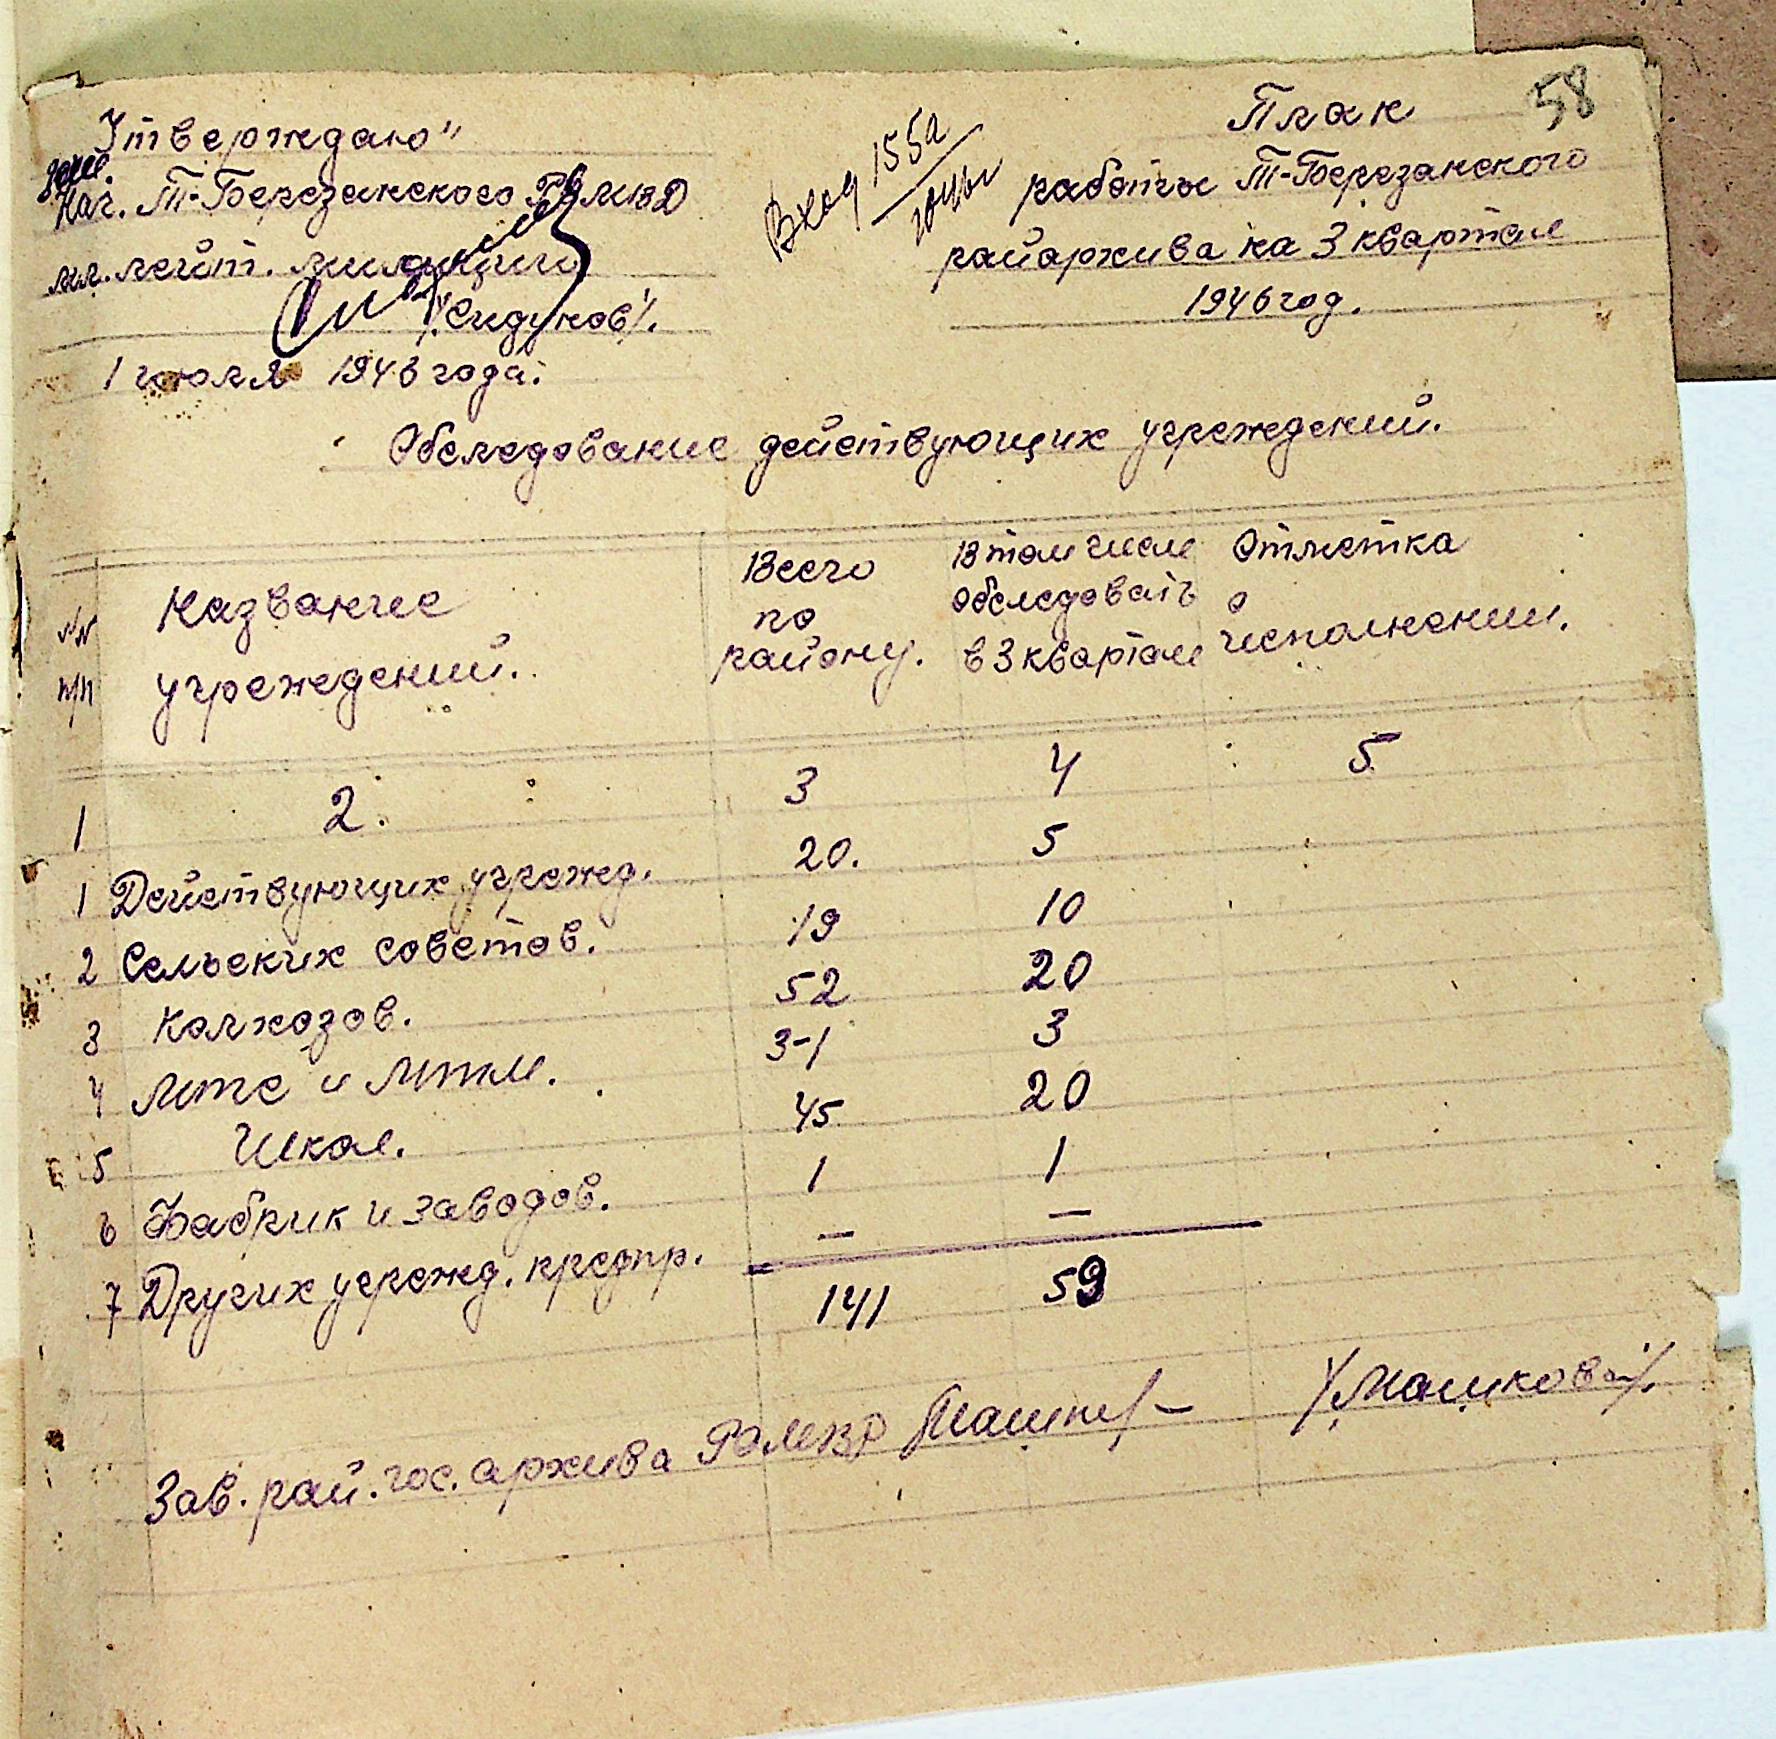 58
Утверждаю"
Нач. Т-Березанского РО МВД
мл. лейт. милиции
/Сидунов/.
1 июля 1946 года.
Вход 155а
План
работы Т-Березанского
райархива на 3 квартал
1946 год.
Обследование действующих учреждений.
№№ п/п
Название учреждений.
Всего по району.
В том числе обследовать в 3 квартал
Отметка о исполнении.
1 2. 3 4 5
1 Действующих учрежд. 20. 5
2 Сельских советов. 19 10
3 Колхозов. 52 20
4 МТС и МТМ. 3-1 3
5 Школ. 45 20
6 Фабрик и заводов. 1 1
7 Других учрежд. предпр. — —
141 59
Зав. рай. гос. архива РОМВД /Машкова/.